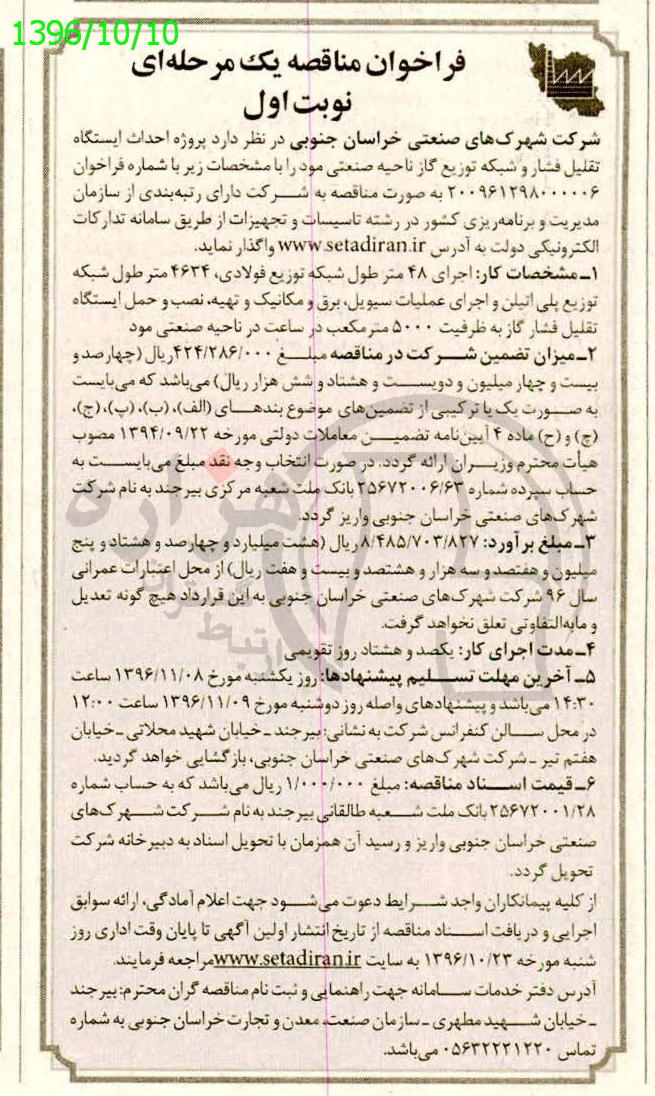 1396/10/10
فراخوان مناقصه یک مرحله‌ای
نوبت اول
شرکت شهرک‌های صنعتی خراسان جنوبی در نظر دارد پروژه احداث ایستگاه
تقلیل فشار و شبکه توزیع گاز ناحیه صنعتی مود را با مشخصات زیر با شماره فراخوان
۲۰۰۹۶۱۲۹۸۰۰۰۰۰۶ به صورت مناقصه به شرکت دارای رتبه‌بندی از سازمان
مدیریت و برنامه‌ریزی کشور در رشته تاسیسات و تجهیزات از طریق سامانه تدارکات
الکترونیکی دولت به آدرس www.setadiran.ir واگذار نماید.
۱ـ مشخصات کار: اجرای ۴۸ متر طول شبکه توزیع فولادی، ۴۶۳۴ متر طول شبکه
توزیع پلی اتیلن و اجرای عملیات سیویل، برق و مکانیک و تهیه، نصب و حمل ایستگاه
تقلیل فشار گاز به ظرفیت ۵۰۰۰ مترمکعب در ساعت در ناحیه صنعتی مود
۲ـ میزان تضمین شرکت در مناقصه مبلغ ۴۲۴/۲۸۶/۰۰۰ ریال (چهارصد و
بیست و چهار میلیون و دویست و هشتاد و شش هزار ریال) می‌باشد که می‌بایست
به صورت یک یا ترکیبی از تضمین‌های موضوع بندهای (الف)، (ب)، (پ)، (ج)،
(چ) و (ح) ماده ۴ آیین‌نامه تضمین معاملات دولتی مورخه ۱۳۹۴/۰۹/۲۲ مصوب
هیأت محترم وزیران ارائه گردد. در صورت انتخاب وجه نقد مبلغ می‌بایست به
حساب سپرده شماره ۲۵۶۷۲۰۰۶/۶۳ بانک ملت شعبه مرکزی بیرجند به نام شرکت
شهرک‌های صنعتی خراسان جنوبی واریز گردد.
۳ـ مبلغ برآورد: ۸/۴۸۵/۷۰۳/۸۲۷ ریال (هشت میلیارد و چهارصد و هشتاد و پنج
میلیون و هفتصد و سه هزار و هشتصد و بیست و هفت ریال) از محل اعتبارات عمرانی
سال ۹۶ شرکت شهرک‌های صنعتی خراسان جنوبی به این قرارداد هیچ گونه تعدیل
و مابه‌التفاوتی تعلق نخواهد گرفت.
۴ـ مدت اجرای کار: یکصد و هشتاد روز تقویمی
۵ـ آخرین مهلت تسلیم پیشنهادها: روز یکشنبه مورخ ۱۳۹۶/۱۱/۰۸ ساعت
۱۴:۳۰ می‌باشد و پیشنهادهای واصله روز دوشنبه مورخ ۱۳۹۶/۱۱/۰۹ ساعت ۱۲:۰۰
در محل سالن کنفرانس شرکت به نشانی: بیرجند ـ خیابان شهید محلاتی ـ خیابان
هفتم تیر ـ شرکت شهرک‌های صنعتی خراسان جنوبی، بازگشایی خواهد گردید.
۶ـ قیمت اسناد مناقصه: مبلغ ۱/۰۰۰/۰۰۰ ریال می‌باشد که به حساب شماره
۲۵۶۷۲۰۰۱/۲۸ بانک ملت شعبه طالقانی بیرجند به نام شرکت شهرک‌های
صنعتی خراسان جنوبی واریز و رسید آن همزمان با تحویل اسناد به دبیرخانه شرکت
تحویل گردد.
از کلیه پیمانکاران واجد شرایط دعوت می‌شود جهت اعلام آمادگی، ارائه سوابق
اجرایی و دریافت اسناد مناقصه از تاریخ انتشار اولین آگهی تا پایان وقت اداری روز
شنبه مورخه ۱۳۹۶/۱۰/۲۳ به سایت www.setadiran.ir مراجعه فرمایند.
آدرس دفتر خدمات سامانه جهت راهنمایی و ثبت نام مناقصه گران محترم: بیرجند
ـ خیابان شهید مطهری ـ سازمان صنعت، معدن و تجارت خراسان جنوبی به شماره
تماس ۰۵۶۳۲۲۲۱۲۲۰ می‌باشد.
هزاره
ارتباط